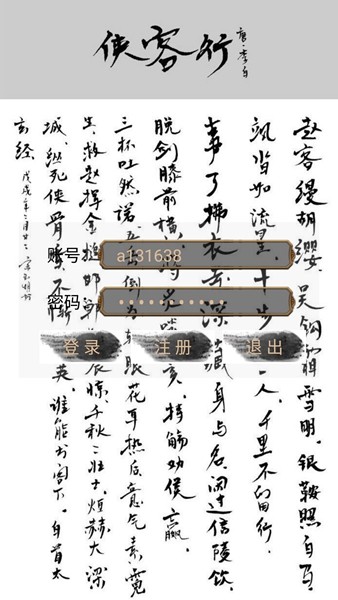 侠客行
唐·李白
赵客缦胡缨 吴钩霜雪明。银鞍照白马,
飒沓如流星。十步一人,千里不留行。
事了拂衣去,深藏身与名。闲过信陵饮,
脱剑膝前横。炙啖亥,持觞劝侯嬴。
三杯吐然诺,五倒为轻眼花耳热后,意气素霓
生。救赵挥金槌,邯郸震惊。千秋二壮士,烜赫大梁
城。纵死侠骨香,不惭英。谁能书阁下。白首太
玄经
戊戌年二月廿二
账号
a131638
密码
登录 注册 退出